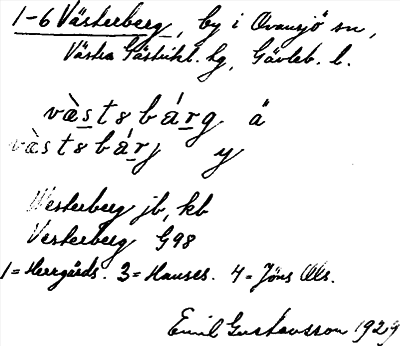 1-6 Västerberg, by i Ovansjö sn,
Västra Gästrikl. hg, Gävleb. l.
vàstsbárg ä
vàstsbárj y
Westerberg jb, kb
Vesterberg G98
1 = Herrgårds. 3 = Hanses. 4 = Jöns Ols.
Emil Gustavsson 1927